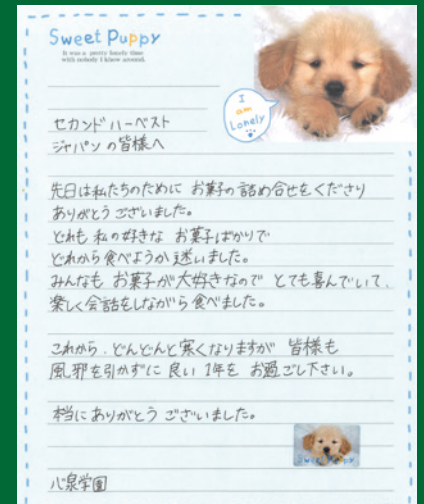 Sweet Puppy
It was a pretty lonely time
with nobody I knew around.
I
am
Lonely
セカンドハーベスト
ジャパンの皆様へ
先日は私たちのために お菓子の詰め合せをくださり
ありがとうございました。
どれも 私の好きな お菓子ばかりで
どれから食べようか迷いました。
みんなも お菓子が大好きなので とても喜んでいて、
楽しく会話をしながら食べました。
これから、どんどんと寒くなりますが 皆様も
風邪を引かずに 良い1年を お過ごし下さい。
本当にありがとうございました。
Sweet Puppy
心泉学園